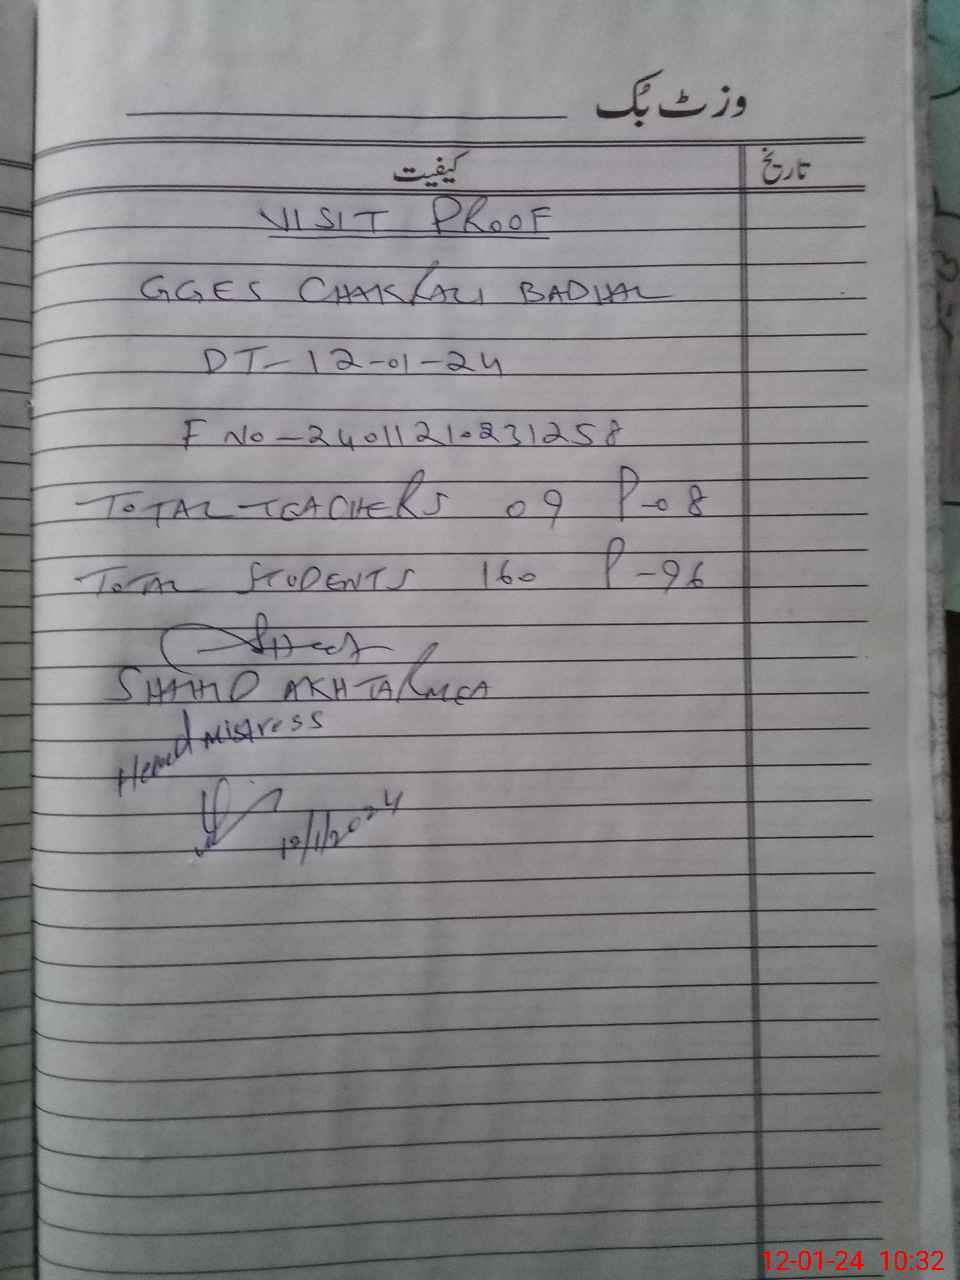 وزٹ بُک
تاریخ
کیفیت
VISIT PROOF
GGES BADHAL
DT-12-01-24
F NO-24011210231258
TOTAL TEACHERS 09 P-08
TOTAL STUDENTS 160 P-96
SHAHID AKHTAR MEA
Head mistress
12/1/2024
12-01-24 10:32